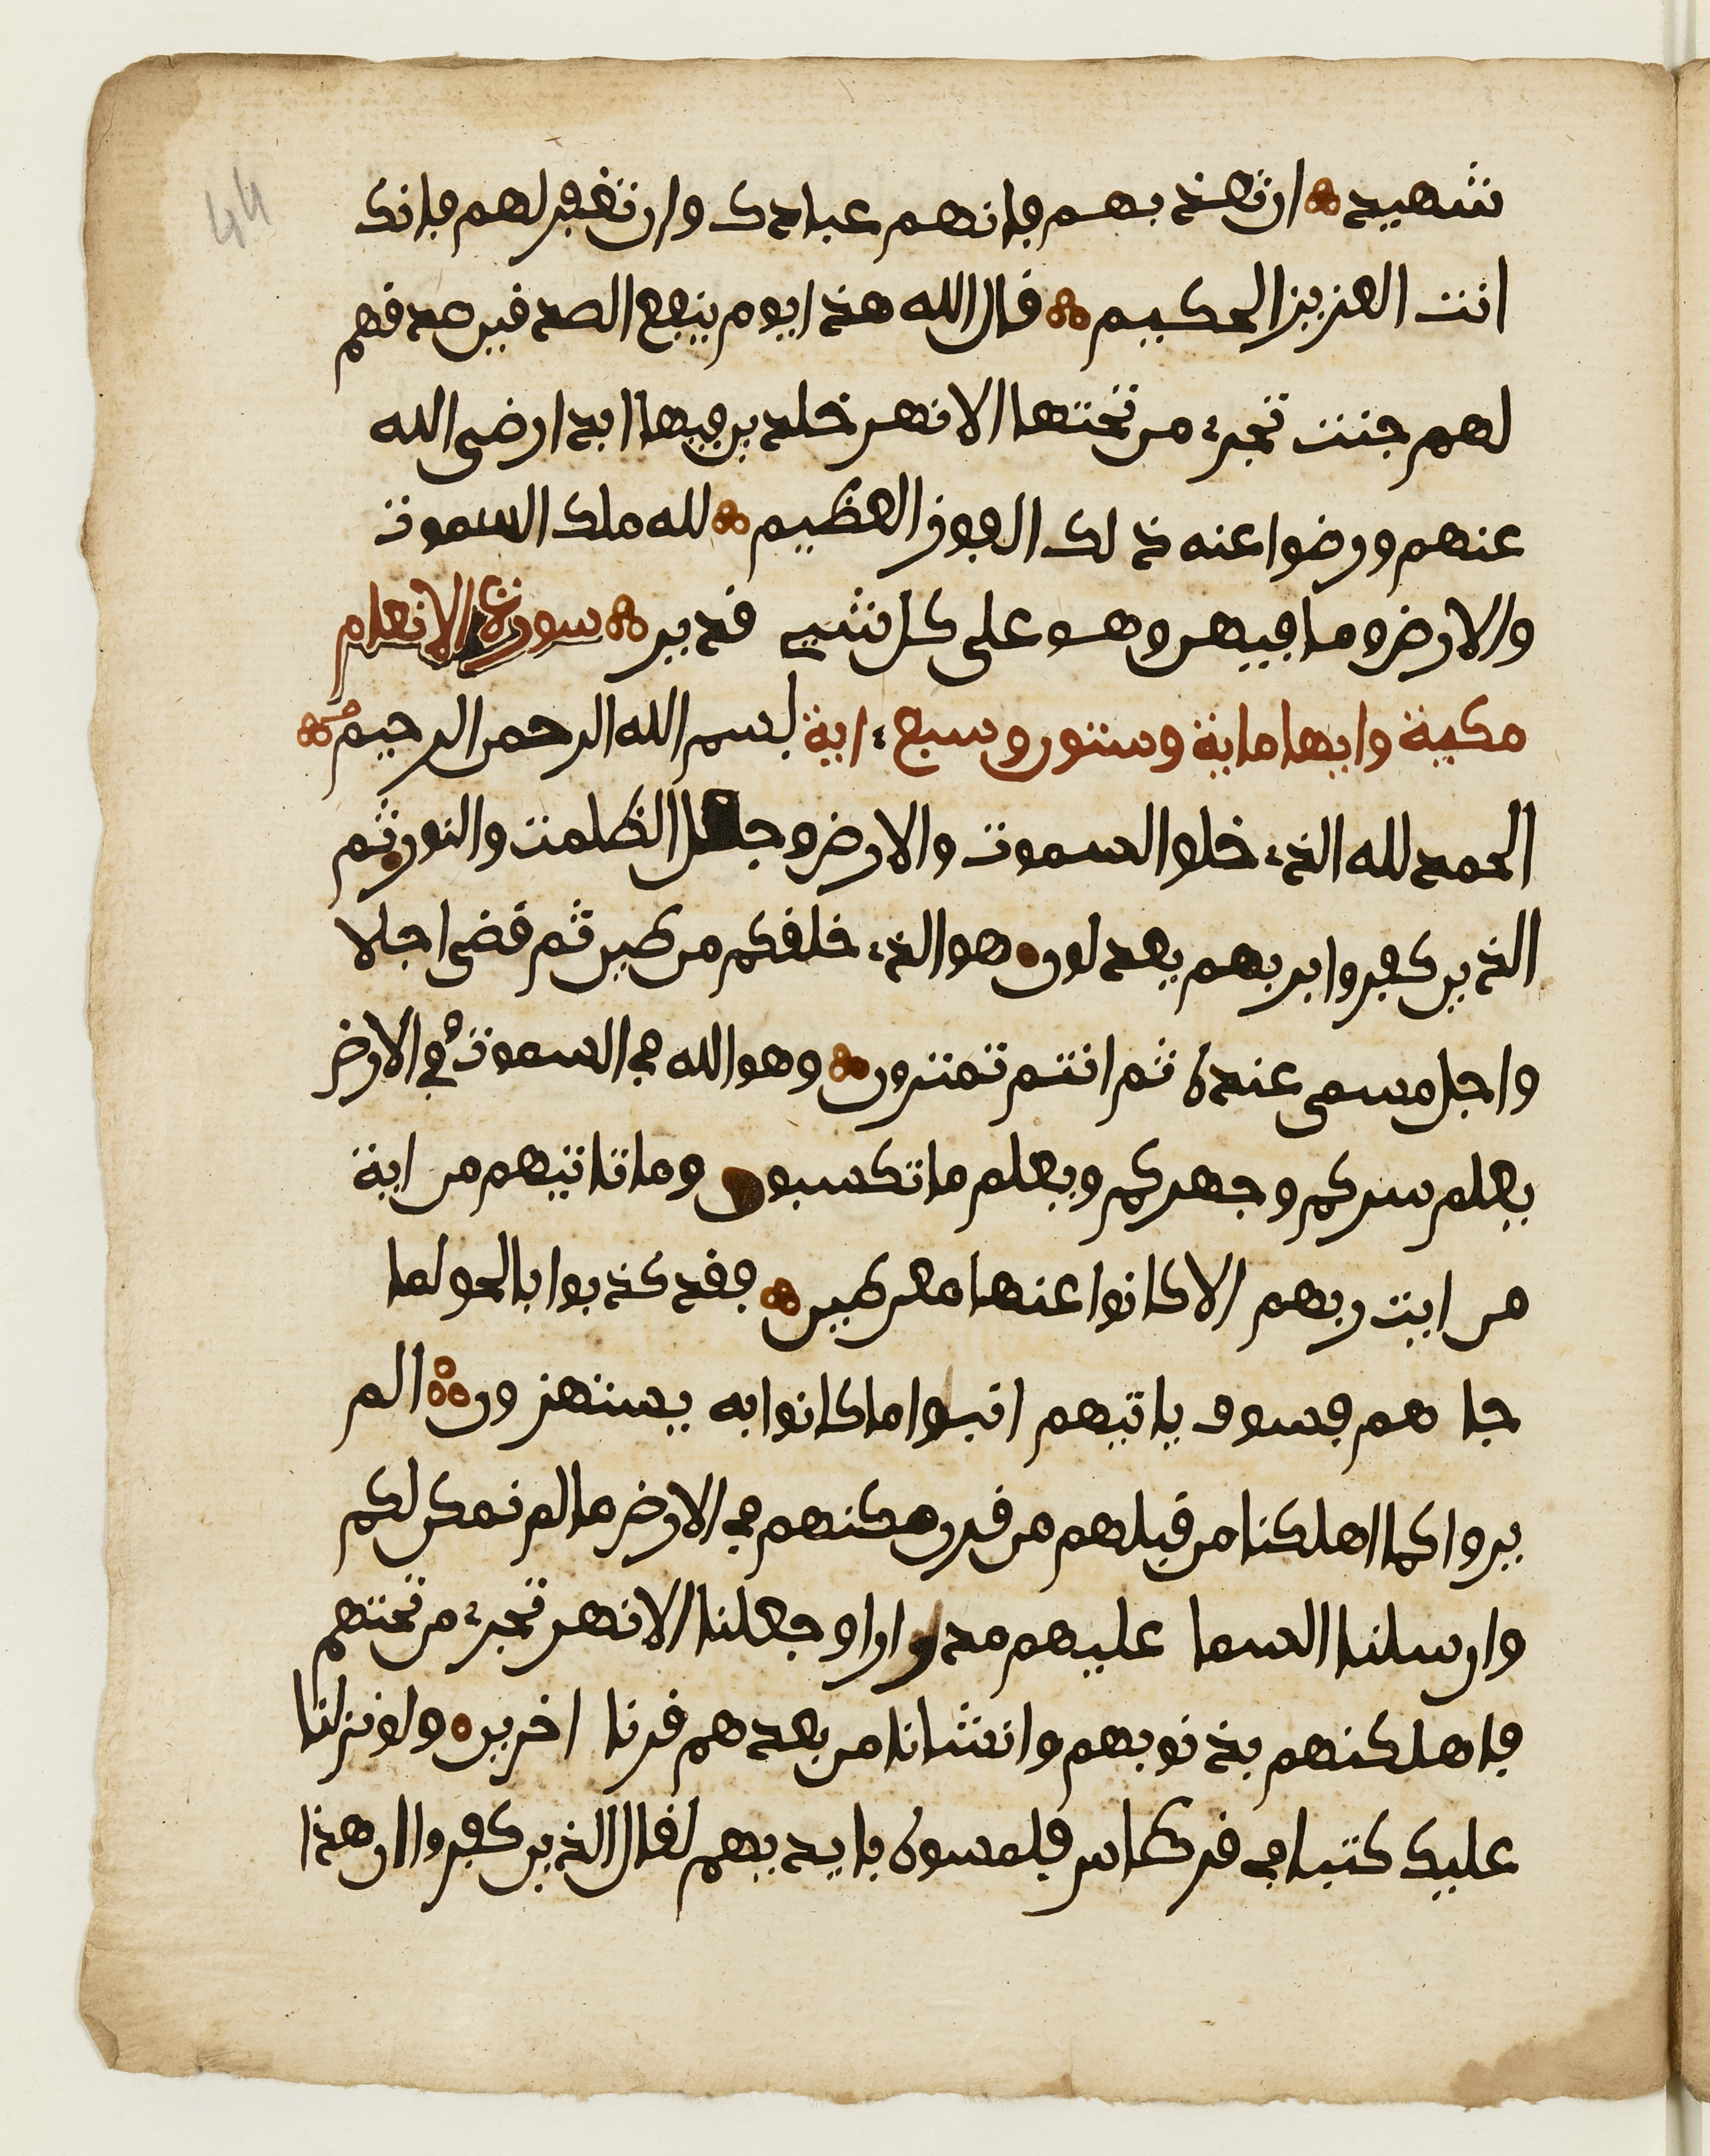 شهيد ان تعذبهم فانهم عبادك وان تغفر لهم فانك
انت العزيز الحكيم قال الله هذا يوم ينفع الصدقين صدقهم
لهم جنت تجري من تحتها الانهر خلدين فيها ابدا رضي الله
عنهم ورضوا عنه ذلك الفوز العظيم لله ملك السموت
والارض وما فيهن وهو على كل شيء قدير سورة الانعام
مكية وايها ماية وستون وسبع اية بسم الله الرحمن الرحيم
الحمد لله الذي خلق السموت والارض وجعل الظلمت والنور ثم
الذين كفروا بربهم يعدلون هو الذي خلقكم من طين ثم قضى اجلا
واجل مسمى عنده ثم انتم تمترون وهو الله في السموت وفي الارض
يعلم سركم وجهركم ويعلم ما تكسبون وما تاتيهم من اية
من ايت ربهم الا كانوا عنها معرضين فقد كذبوا بالحق لما
جا هم فسوف ياتيهم انبوا ما كانوا به يستهزون الم
يروا كم اهلكنا من قبلهم من قرن مكنهم في الارض ما لم نمكن لكم
وارسلنا السما عليهم مدرارا وجعلنا الانهر تجري من تحتهم
فاهلكنهم بذنوبهم وانشانا من بعدهم قرنا اخرين ولو نزلنا
عليك كتبا في قرطاس فلمسوه بايديهم لقال الذين كفروا ان هذا
44